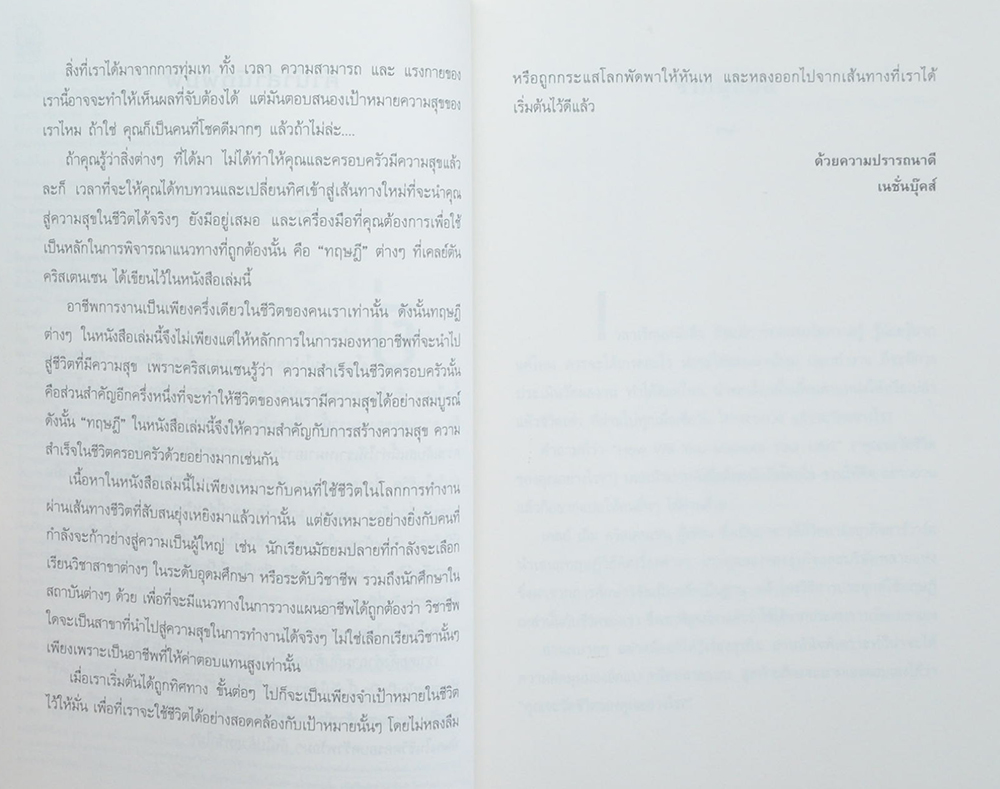 สิ่งที่เราได้มาจากการทุ่มเท ทั้ง เวลา ความสามารถ และ แรงกายของ
เรานี้อาจจะทำให้เห็นผลที่จับต้องได้ แต่มันตอบสนองเป้าหมายความสุขของ
เราไหม ถ้าใช่ คุณก็เป็นคนที่โชคดีมากๆ แล้วถ้าไม่ล่ะ....
ถ้าคุณรู้ว่าสิ่งต่างๆ ที่ได้มา ไม่ได้ทำให้คุณและครอบครัวมีความสุขแล้ว
ละก็ เวลาที่จะให้คุณได้ทบทวนและเปลี่ยนทิศเข้าสู่เส้นทางใหม่ที่จะนำคุณ
สู่ความสุขในชีวิตได้จริงๆ ยังมีอยู่เสมอ และเครื่องมือที่คุณต้องการเพื่อใช้
เป็นหลักในการพิจารณาแนวทางที่ถูกต้องนั้น คือ “ทฤษฎี” ต่างๆ ที่เคลย์ตัน
คริสเตนเซน ได้เขียนไว้ในหนังสือเล่มนี้
อาชีพการงานเป็นเพียงครึ่งเดียวในชีวิตของคนเราเท่านั้น ดังนั้นทฤษฎี
ต่างๆ ในหนังสือเล่มนี้จึงไม่เพียงแต่ให้หลักการในการมองหาอาชีพที่จะนำไป
สู่ชีวิตที่มีความสุข เพราะคริสเตนเซนรู้ว่า ความสำเร็จในชีวิตครอบครัวนั้น
คือส่วนสำคัญอีกครึ่งหนึ่งที่จะทำให้ชีวิตของคนเรามีความสุขได้อย่างสมบูรณ์
ดังนั้น “ทฤษฎี” ในหนังสือเล่มนี้จึงให้ความสำคัญกับการสร้างความสุข ความ
สำเร็จในชีวิตครอบครัวด้วยอย่างมากเช่นกัน
เนื้อหาในหนังสือเล่มนี้ไม่เพียงเหมาะกับคนที่ใช้ชีวิตในโลกการทำงาน
ผ่านเส้นทางชีวิตที่สับสนยุ่งเหยิงมาแล้วเท่านั้น แต่ยังเหมาะอย่างยิ่งกับคนที่
กำลังจะก้าวย่างสู่ความเป็นผู้ใหญ่ เช่น นักเรียนมัธยมปลายที่กำลังจะเลือก
เรียนวิชาสาขาต่างๆ ในระดับอุดมศึกษา หรือระดับวิชาชีพ รวมถึงนักศึกษาใน
สถาบันต่างๆ ด้วย เพื่อที่จะมีแนวทางในการวางแผนอาชีพได้ถูกต้องว่า วิชาชีพ
ใดจะเป็นสาขาที่นำไปสู่ความสุขในการทำงานได้จริงๆ ไม่ใช่เลือกเรียนวิชานั้นๆ
เพียงเพราะเป็นอาชีพที่ให้ค่าตอบแทนสูงเท่านั้น
เมื่อเราเริ่มต้นได้ถูกทิศทาง ขั้นต่อๆ ไปก็จะเป็นเพียงจำเป้าหมายในชีวิต
ไว้ให้มั่น เพื่อที่เราจะใช้ชีวิตได้อย่างสอดคล้องกับเป้าหมายนั้นๆ โดยไม่หลงลืม
หรือถูกกระแสโลกพัดพาให้หันเห และหลงออกไปจากเส้นทางที่เราได้
เริ่มต้นไว้ดีแล้ว
ด้วยความปรารถนาดี
เนชั่นบุ๊คส์